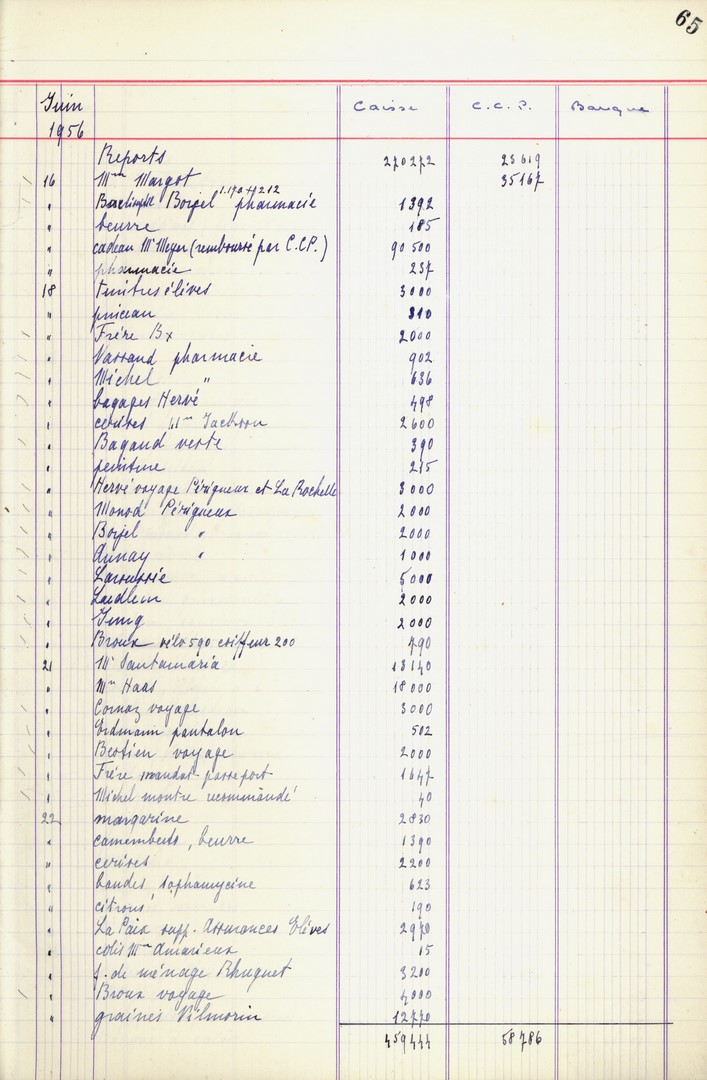 65
Juin Caisse C.C.P. Banque
1956
Reports 270272 23619
16 Mme Margot 35167
" Boijel 1.170 + 212 pharmacie 1392
" beurre 185
" cadeau Mr Meyer (remboursé par C.C.P.) 90 500
" pharmacie 237
18 élèves 3000
" pinceau 310
" Frère Bx 2000
" Vassaud pharmacie 902
" Michel " 636
" bagages Hervé 498
" cerises Mme Jackson 2600
" Bagaud veste 390
" peinture 215
" Hervé voyage Périgueux et La Rochelle 3000
" Monod Périgueux 2000
" Boijel " 2000
" Aunay " 1000
" Laroussie 5000
" Laedlein 2000
" 2000
" Broux vélo 590 coiffeur 200 790
21 Mr Santamaria 13140
" Mme Haas 18000
" Cornaz voyage 3000
" Erdmann pantalon 502
" voyage 2000
" Frère mandat passeport 1647
" Michel montre recommandé 40
22 margarine 2830
" camemberts, beurre 1390
" cerises 2200
" bandes, sophamycine 623
" citrons 190
" La Paix supp. Assurances Elèves 2970
" colis Mme Amarieux 15
" f. de ménage Rhuguet 3200
" Broux voyage 4000
" graines Vilmorin 12770
459444 58786